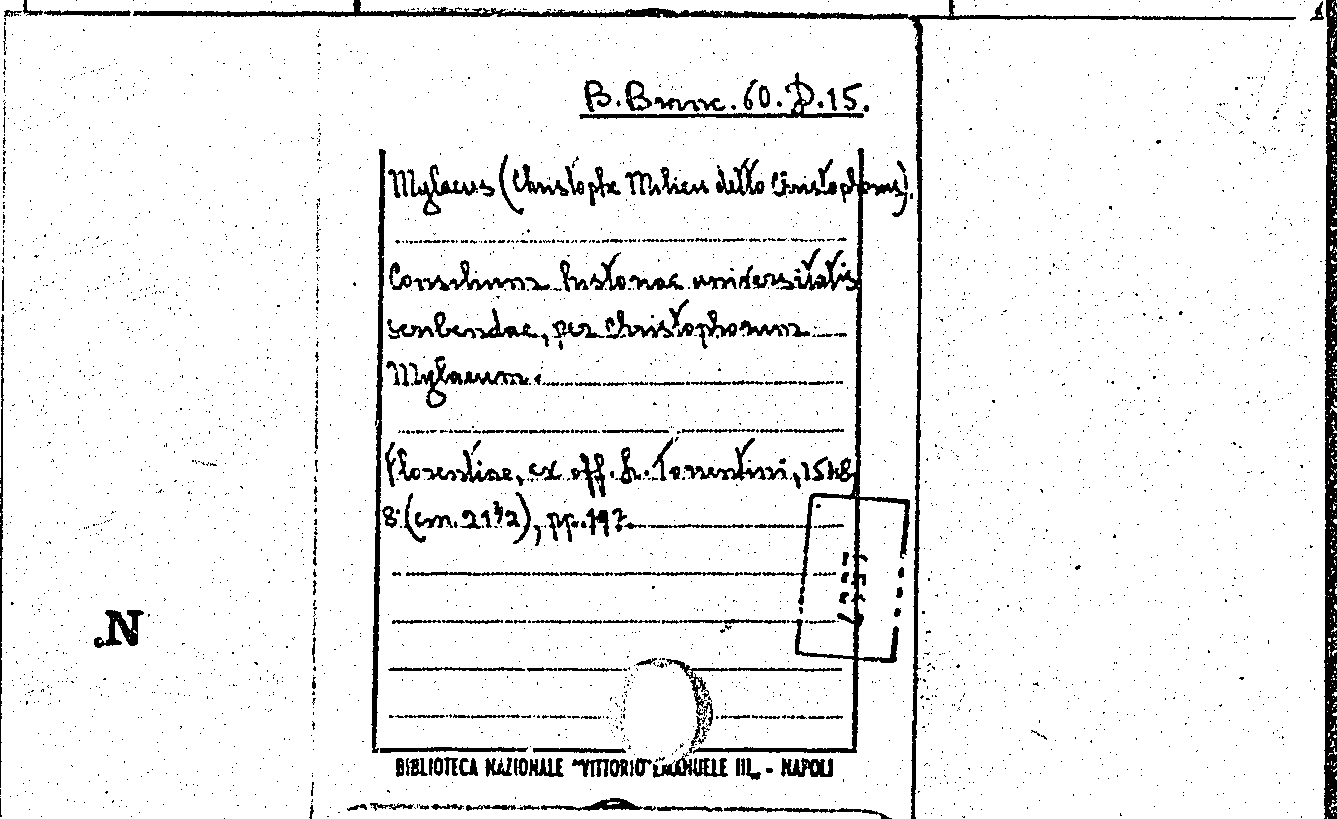 B. Branc. 60. D. 15.
Mylaeus (Christophe Milieu detto Christophorus).
Consilium historiae universitatis
scribendae, per Christophorum
Mylaeum.
Florentiae, ex off. L. Torrentini, 1548,
8° (cm. 21½), pp. 197.
.N
BIBLIOTECA NAZIONALE "VITTORIO EMANUELE III„ - NAPOLI